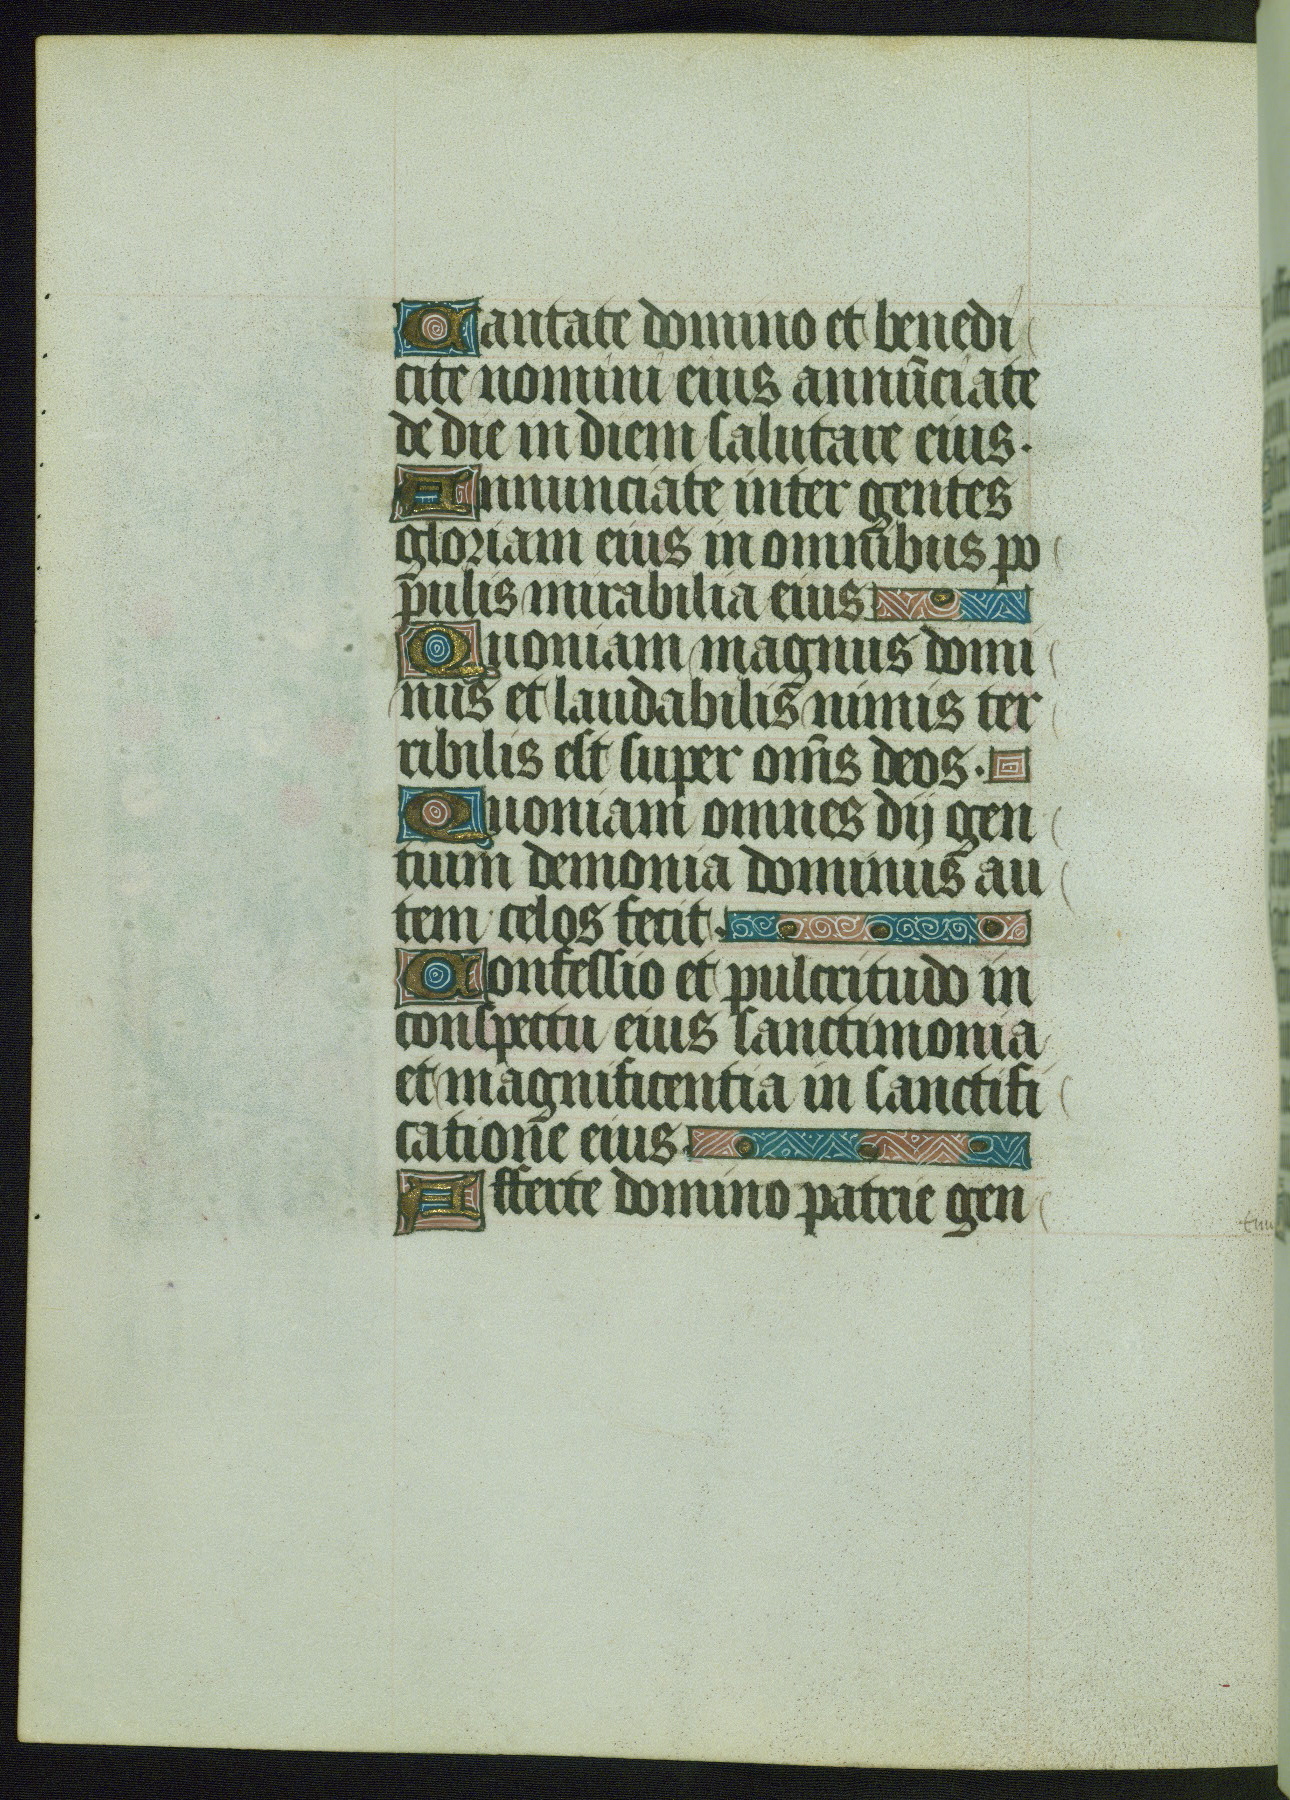 Cantate domino et benedi
cite nomini eius annũciate
de die in diem salutare eius.
Annunciate inter gentes
gloriam eius in omnibus po
pulis mirabilia eius
Quoniam magnus domi
nus et laudabilis nimis ter
ribilis est super om̃s deos.
Quoniam omnes dij gen
tium demonia dominus au
tem celos fecit.
Confessio et pulcritudo in
conspectu eius sanctimonia
et magnificentia in sanctifi
catione eius.
Afferte domino patrie gen